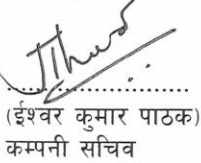 (ईश्वर कुमार पाठक)
कम्पनी सचिव